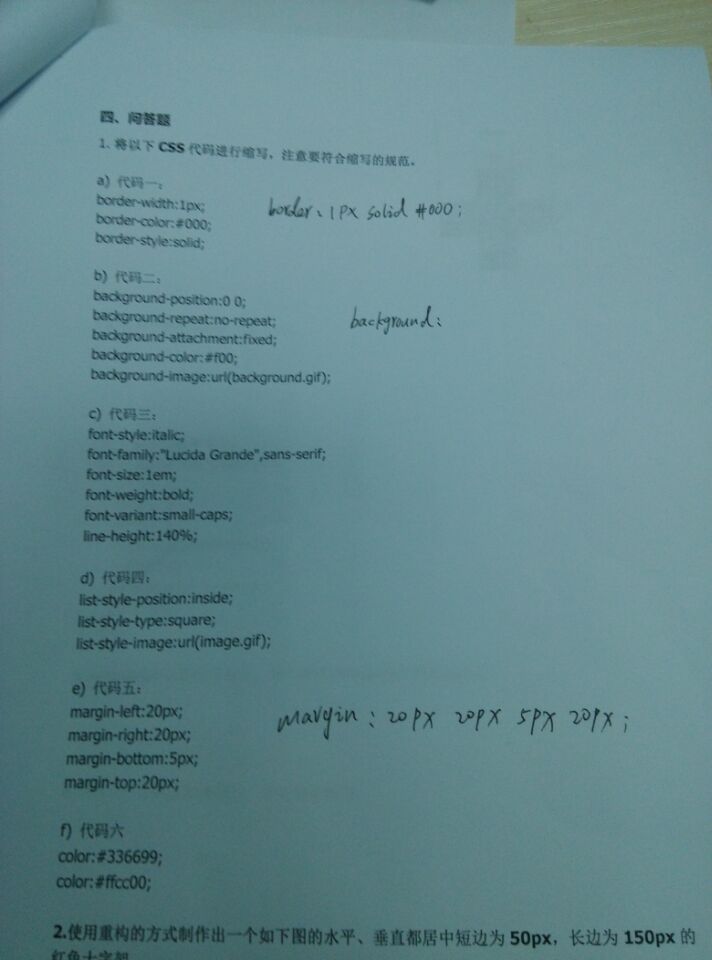 四、问答题
1. 将以下 CSS 代码进行缩写，注意要符合缩写的规范。
a) 代码一：
border-width:1px;
border-color:#000;
border-style:solid;
border: 1px solid #000;
b) 代码二：
background-position:0 0;
background-repeat:no-repeat;
background-attachment:fixed;
background-color:#f00;
background-image:url(background.gif);
background:
c) 代码三：
font-style:italic;
font-family:"Lucida Grande",sans-serif;
font-size:1em;
font-weight:bold;
font-variant:small-caps;
line-height:140%;
d) 代码四：
list-style-position:inside;
list-style-type:square;
list-style-image:url(image.gif);
e) 代码五：
margin-left:20px;
margin-right:20px;
margin-bottom:5px;
margin-top:20px;
margin: 20px 20px 5px 20px;
f) 代码六
color:#336699;
color:#ffcc00;
2.使用重构的方式制作出一个如下图的水平、垂直都居中短边为 50px，长边为 150px 的
红色十字架